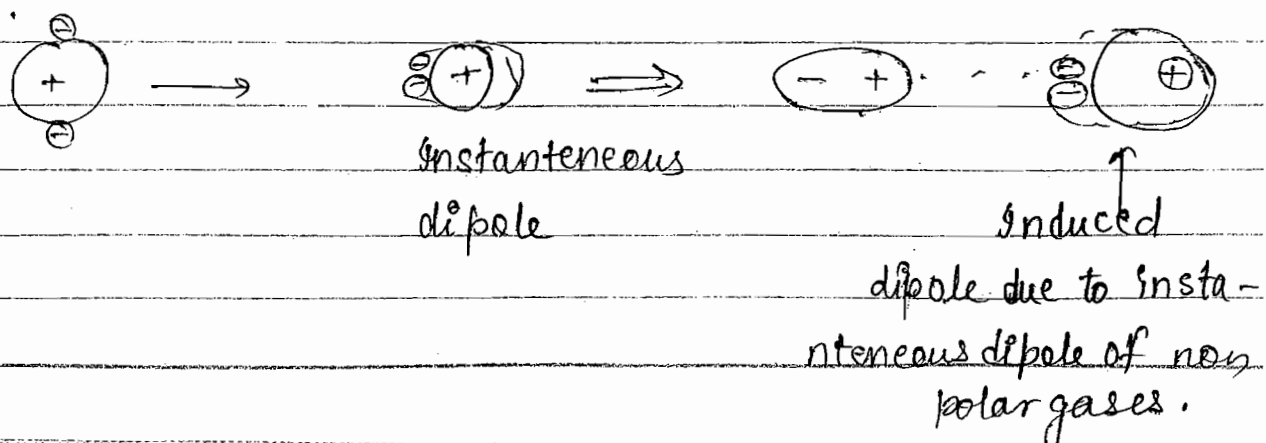 ⊖
+ ⟶ ⊖ ⊖ + ⟹ - + . - . ⊖ ⊖ ⊕
⊖
Instanteneous
dipole
Induced
dipole due to insta-
nteneous dipole of non
polar gases.